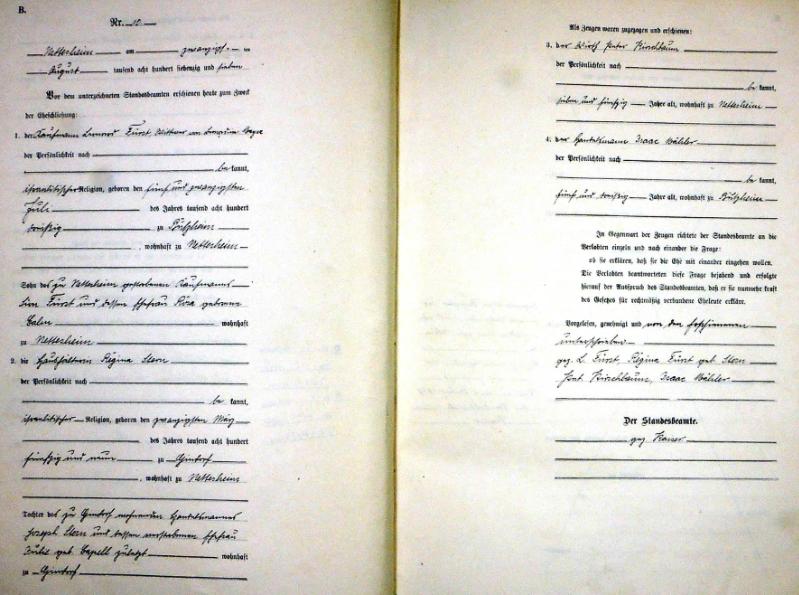 B.
Nr. 10
Netterheim am zwanzigsten
August tausend acht hundert siebenzig und sieben
Vor dem unterzeichneten Standesbeamten erschienen heute zum Zweck
der Eheschließung:
1. der Kaufmann Fürst Wittwer von
der Persönlichkeit nach
be kannt,
israelitischer Religion, geboren den fünf und zwanzigsten
Juli des Jahres tausend acht hundert
dreißig zu
, wohnhaft zu Netterheim
Sohn des zu Netterheim gestorbenen Kaufmanns
Fürst und dessen Ehefrau Rosa geborene
wohnhaft
zu Netterheim
2. die Haushälterin Regina Stern
der Persönlichkeit nach
be kannt,
israelitischer Religion, geboren den zwanzigsten März
des Jahres tausend acht hundert
fünfzig und neun zu Gindorf
, wohnhaft zu Netterheim
Tochter des zu Gindorf wohnenden Handelsmannes
Joseph Stern und dessen verstorbenen Ehefrau
geb. Capell zuletzt wohnhaft
zu Gindorf
Als Zeugen waren zugezogen und erschienen:
3. der Wirth Peter Kirschbaum
der Persönlichkeit nach
be kannt,
sieben und fünfzig Jahre alt, wohnhaft zu Netterheim
4. der Handelsmann Isaac
der Persönlichkeit nach
be kannt,
fünf und dreißig Jahre alt, wohnhaft zu
In Gegenwart der Zeugen richtete der Standesbeamte an die
Verlobten einzeln und nach einander die Frage:
ob sie erklären, daß sie die Ehe mit einander eingehen wollen.
Die Verlobten beantworteten diese Frage bejahend und erfolgte
hierauf der Ausspruch des Standesbeamten, daß er sie nunmehr kraft
des Gesetzes für rechtmäßig verbundene Eheleute erkläre.
Vorgelesen, genehmigt und von den Erschienenen
unterschrieben
gez. L. Fürst, Regina Fürst geb. Stern
Pet. Kirschbaum, Isaac
Der Standesbeamte.
gez. Kaiser